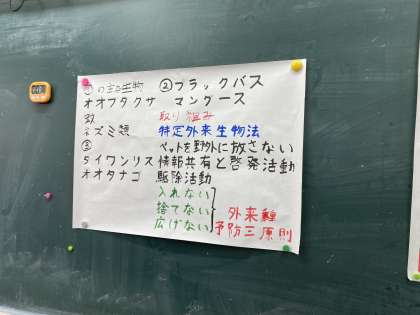 ①の主な生物 ②ブラックバス
オオブタクサ マングース
取り組み
ネズミ類 特定外来生物法
③ ペットを野外に放さない
タイワンリス 情報共有と啓発活動
オオタナゴ 駆除活動
入れない
捨てない 外来種
広げない 予防三原則